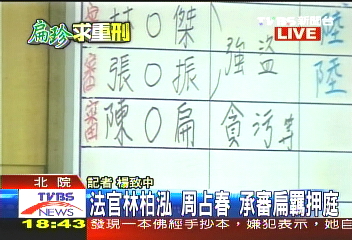 扁珍求重刑
TVBS新聞台
LIVE
審 林○傑 強盜 陸
審 張○振 陸
審 陳○扁 貪污等
北院
記者 楊致中
TVBS
NEWS
法官林柏泓 周占春 承審扁羈押庭
18:43 發現一本佛經手抄本，嫌犯表示，她自